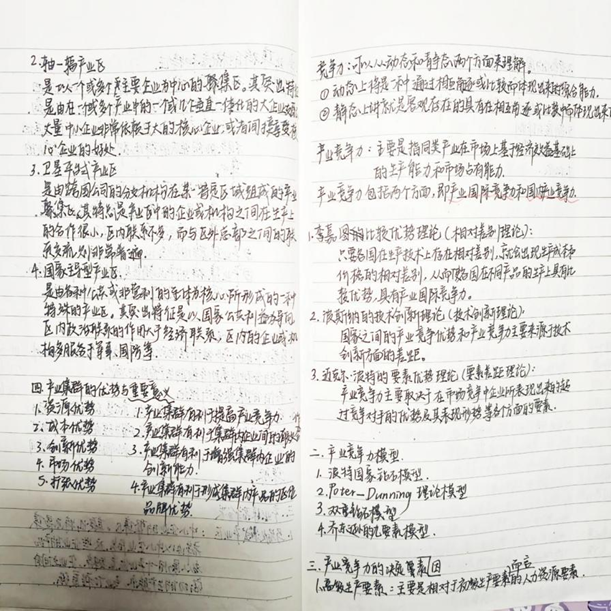 2.轴-辐产业区
是以一个或多个主要企业为中心的聚集区。其突出特征
是由在一个或多个产业中的一个或几个垂直一体化的大企业
大量中小企业非常依赖于大的核心企业,或者间接享受核
心企业的好处。
3.卫星平台式产业区
是由跨国公司的分支机构在某一特定区域组成的产业
聚集区,其特点是产业区中的企业或机构之间在生产上
的合作很小,区内联系不多,而与区外总部之间的联
系交流则非常普遍。
4.国家主导型产业区
是由各种公共或非营利的实体为核心所形成的一种
特殊的产业区,其突出特征是以国家公共利益为
区内政治联系的作用大于经济联系,区内的企业或
构多服务于军事、国防等。
四.产业集群的优势与重要意义
1.资源优势 1.产业集群有利于提高产业竞争力
2.成本优势 2.产业集群有利于集群内企业间的
3.创新优势 3.产业集群有利于增强集群内企业的
4.市场优势 创新能力.
5.扩张优势 4.产业集群有利于形成集群内产品的区位
品牌优势.
竞争力:可以从动态和静态两个方面来理解.
①动态上将是一种通过相互角逐或比较而体现出来的综合能力.
②静态上讲就是客观存在的具有在相互角逐或比较中而体现出来
产业竞争力:主要是指同类产业在市场上基于经济效益基础上
的生产能力和市场占有能力.
产业竞争力包括两个方面,即产业国际竞争力和国内竞争力.
李嘉图的比较优势理论(相对差别理论):
只要各国在生产技术上存在相对差别,就会出现生产成本
价格的相对差别,从而使各国在不同产品的生产上具有比
较优势,具有产业国际竞争力.
2.波斯纳的技术创新理论(技术创新理论):
国家之间的产业竞争优势和产业竞争力主要来源于技术
创新方面的差距。
3.迈克尔·波特的要素优势理论(要素差距理论):
产业竞争力主要取决于在市场竞争中企业所表现出来的超
过竞争对手的优势及其表现形势等多方面的要素.
二.产业竞争力模型.
1.波特国家钻石模型.
2.Poter-Dunning理论模型
3.双重钻石模型.
4.乔东逊的九要素模型.
三.产业竞争力的决定因素
1.高级生产要素:主要是相对于初级生产要素而言的人力资源要素.